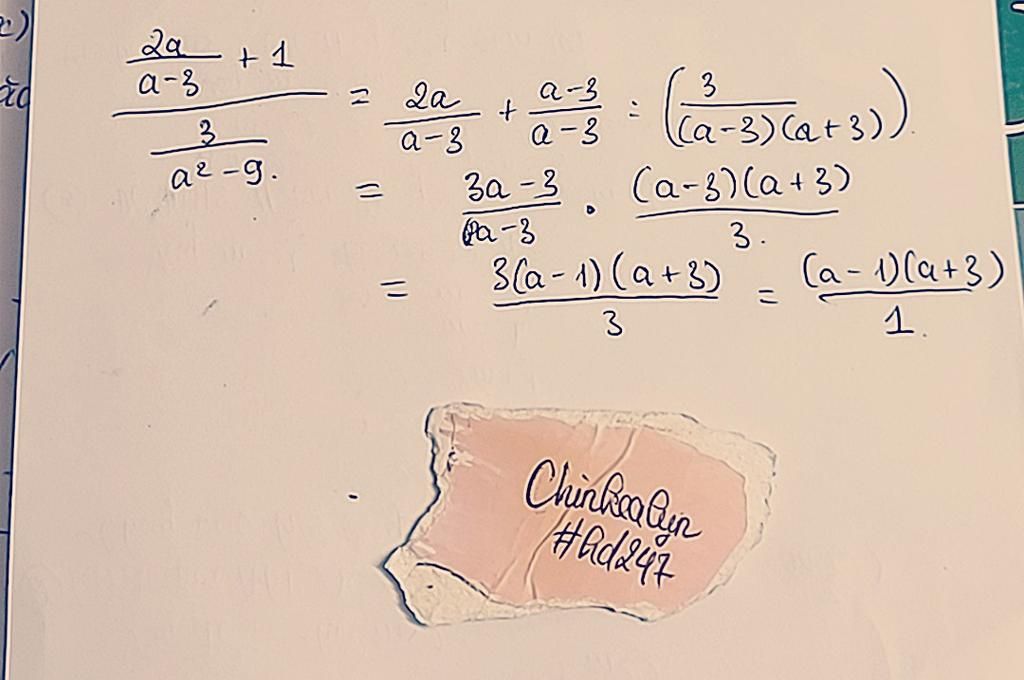 c)
(2a/(a-3) + 1)/(3/(a²-9.)) = 2a/(a-3) + (a-3)/(a-3) : (3/((a-3)(a+3))).
= (3a-3)/(a-3) · ((a-3)(a+3))/3.
= (3(a-1)(a+3))/3 = ((a-1)(a+3))/1.
#hd247